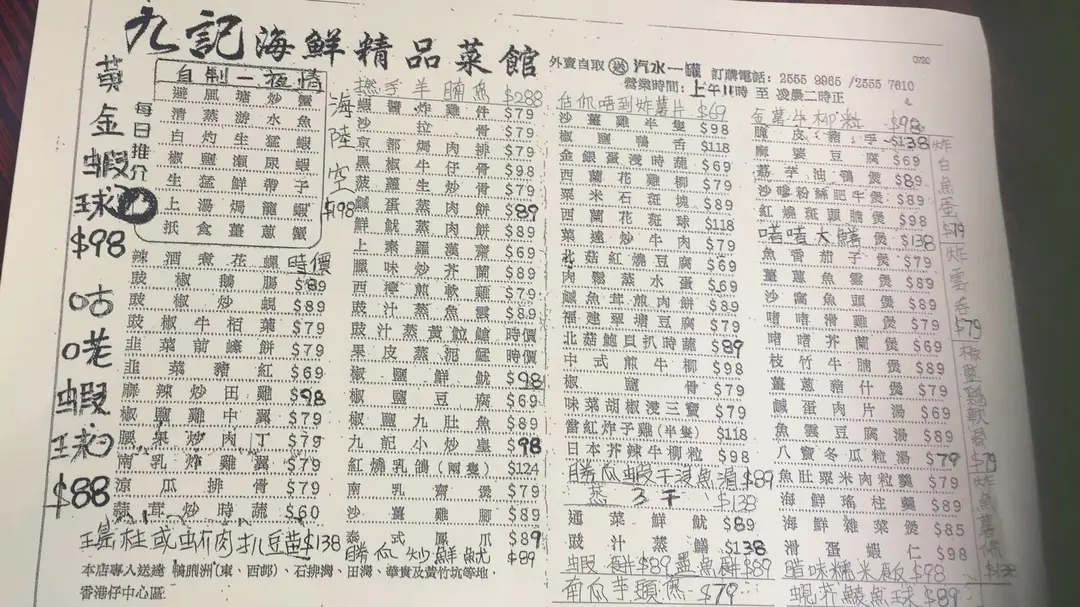 九記海鮮精品菜館
外賣自取 送 汽水一罐 訂購電話: 2555 9965 /2555 7610
營業時間: 上午11時 至 凌晨二時正
0720
黃金蝦球 $98
咕咾蝦球 $88
每日推介
自制一夜情
避風塘炒蟹
清蒸游水魚
白灼生猛蝦
椒鹽瀨尿蝦
生猛鮮帶子
上湯焗龍蝦
薑蔥蟹
海陸空 $198
辣酒煮花螺 時價
豉椒鵝腸 $89
豉椒炒蜆 $89
豉椒牛栢葉 $79
韭菜煎蠔餅 $79
韭菜豬紅 $69
麻辣炒田雞 $98
椒鹽雞中翼 $79
腰果炒肉丁 $79
南乳炸雞翼 $79
涼瓜排骨 $79
炒時蔬 $60
柱或虾肉扒豆苗 $138
羊腩煲 $288
炸雞件 $79
沙拉骨 $79
京都焗肉排 $79
黑椒牛仔骨 $98
菠蘿生炒骨 $79
鹹蛋蒸肉餅 $89
鮮魷蒸肉餅 $89
上素羅漢齋 $69
臘味炒芥蘭 $89
西檸煎軟雞 $79
豉汁蒸魚雲 $89
豉汁蒸黃 時價
果皮蒸 時價
椒鹽鮮魷 $98
椒鹽豆腐 $69
椒鹽九肚魚 $89
九記小炒皇 $98
紅燒乳鴿(兩隻) $124
南乳齋煲 $79
沙薑雞腳 $89
泰式鳳爪 $89
勝瓜炒鮮魷 $89
估你唔到炸薯片 $69
沙薑雞半隻 $98
椒鹽鴨舌 $118
金銀蛋浸時蔬 $69
西蘭花雞柳 $79
粟米石斑塊 $89
西蘭花斑球 $118
菜遠炒牛肉 $79
北菇紅燒豆腐 $69
肉鬆蒸水蛋 $69
鹹魚茸煎肉餅 $89
福建翠塘豆腐 $79
北菇鮑貝扒時蔬 $89
中式煎牛柳 $98
椒鹽骨 $79
味菜胡椒浸三寶 $79
當紅炸子雞(半隻) $118
日本芥辣牛柳粒 $98
勝瓜蝦干浸魚滑 $89
蒸 $138
通菜鮮魷 $89
豉汁蒸鱔 $138
蝦餅 $89 墨魚餅 $89
南瓜芋頭煲 $79
牛柳粒 $98
脆皮豬手 $138
麻婆豆腐 $69
荔芋油鴨煲 $89
沙嗲粉絲肥牛煲 $89
紅燒斑頭腩煲 $98
啫啫大鱔煲 $138
魚香茄子煲 $79
薑蔥魚雲煲 $89
沙窩魚頭煲 $89
啫啫滑雞煲 $79
啫啫芥蘭煲 $69
枝竹牛腩煲 $89
薑蔥豬什煲 $79
鹹蛋肉片湯 $69
魚雲豆腐湯 $89
八寶冬瓜粒湯 $79
魚肚粟米肉粒羹 $79
海鮮瑤柱羹 $89
海鮮雜菜煲 $85
滑蛋蝦仁 $98
臘味糯米飯 $98
蜆芥鯪魚球 $89
炸白魚蛋 $79
炸雲吞 $79
椒鹽雞軟骨 $79
炸魚薯條 $138
本店專人送達 鴨脷洲(東、西邨)、石排灣、田灣、華貴及黃竹坑等地,
香港仔中心區